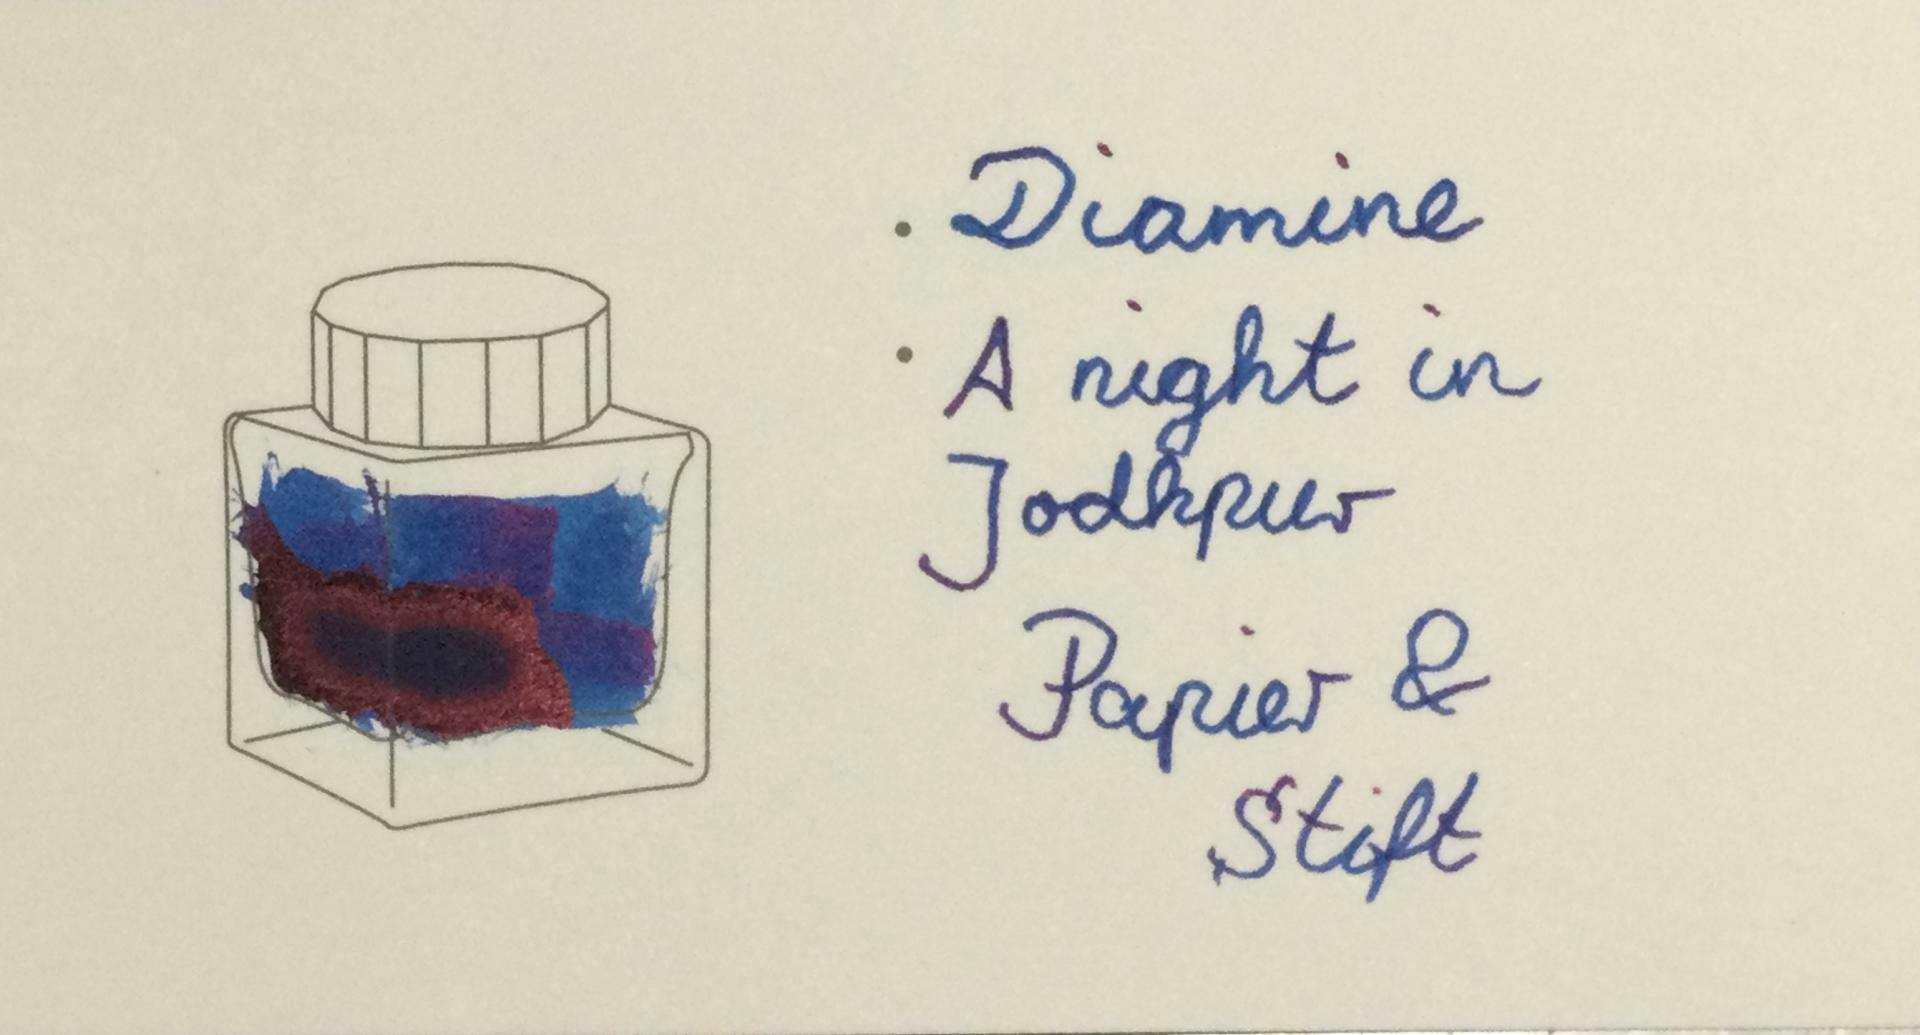 Diamine
A night in
Jodhpur
Papier &
Stift